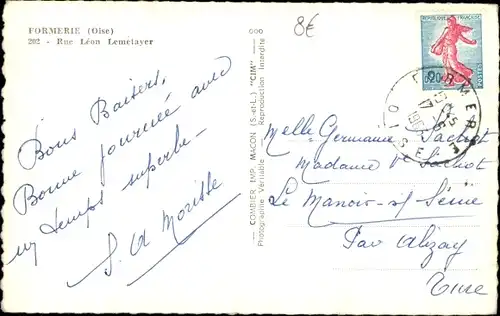 FORMERIE (Oise)
202 - Rue Léon Lemétayer
8€
REPUBLIQUE FRANÇAISE
0,20
POSTES
FORMERIE
OISE
Bons Baisers,
Bonne journée avec
un temps superbe -
COMBIER IMP. MACON (S.-et-L.) "CIM"
Photographie Véritable - Reproduction Interdite
Melle Germaine
Madame Ve
Le Manoir s/ Seine
Par Alizay
Eure